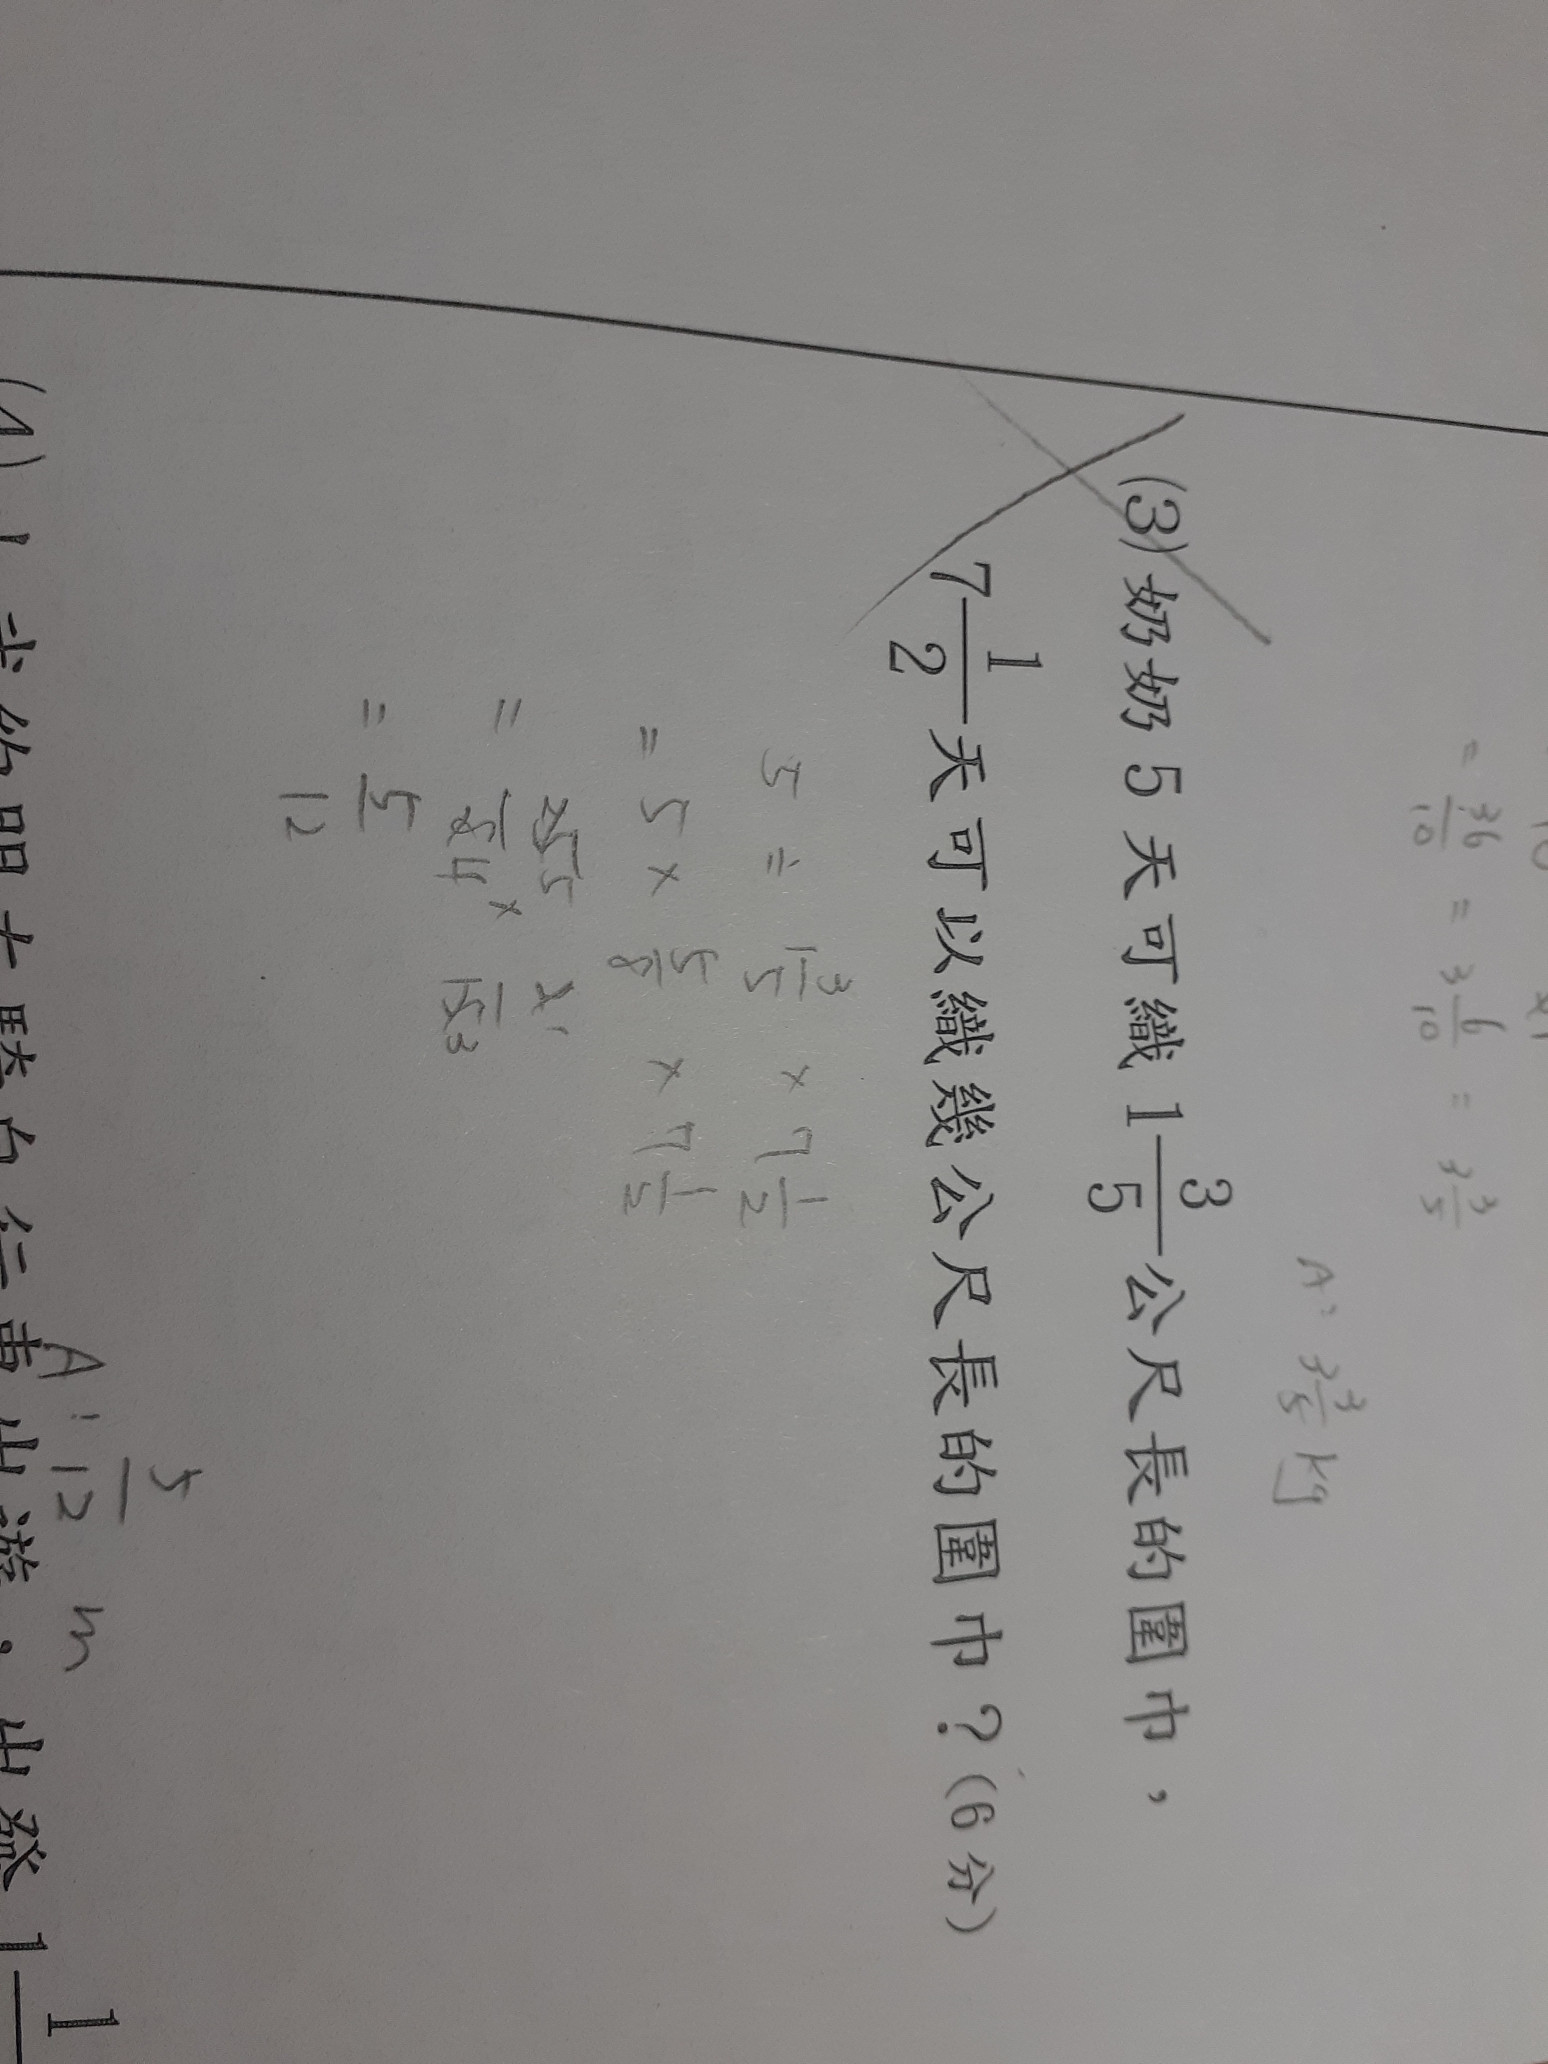 = 36/10 = 3 6/10 = 3 3/5
A: 3 3/5 kg
(3) 奶奶 5 天可織 1 3/5 公尺長的圍巾，
7 1/2 天可以織幾公尺長的圍巾？(6 分)
5 ÷ 1 3/5 × 7 1/2
= 5 × 5/8 × 7 1/2
= 25 5/8 4 × 2 1/15 3
= 5/12
A: 5/12 m